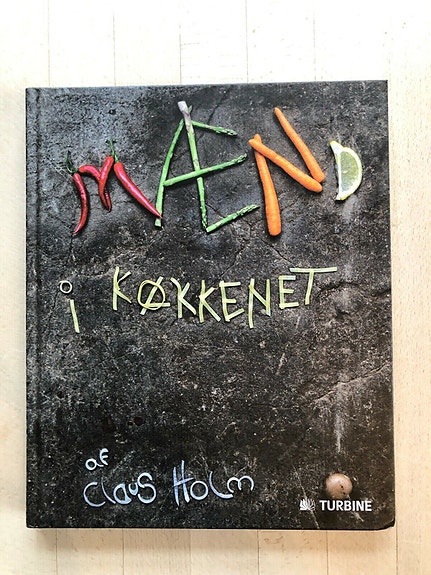 MÆND
i KØKKENET
af
Claus Holm
TURBINE